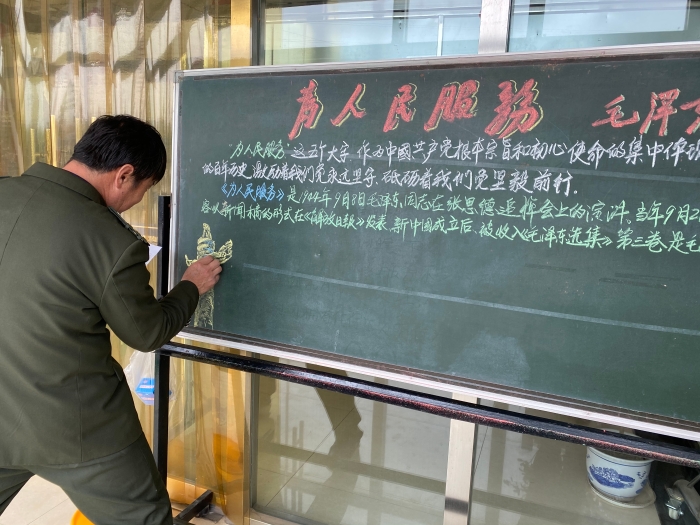 为人民服务 毛泽东
“为人民服务”这五个大字,作为中國共产党根本宗旨和初心使命的集中体现
的百年历史,激励着我们党永远坚守、砥砺着我们党坚毅前行.
《为人民服务》是1944年9月8日毛泽东同志在张思德追悼会上的演讲.当年9月2
容以新闻稿的形式在《解放日报》发表.新中国成立后,被收入《毛泽东选集》第三卷是毛